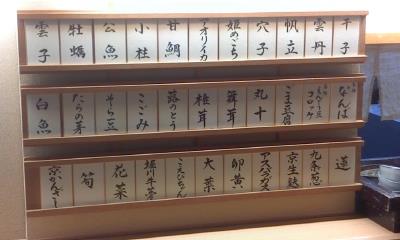 干子
雲丹
帆立
穴子
姫めごち
アオリイカ
甘鯛
小柱
公魚
牡蠣
雲子
なんば
コロッケ
ごま豆腐
丸十
舞茸
椎茸
蕗のとう
こごみ
そら豆
たらの芽
白魚
蓮
九条葱
京生麸
アスパラガス
卵黄
大葉
こえびちゃん
堀川牛蒡
花菜
筍
京かんざし